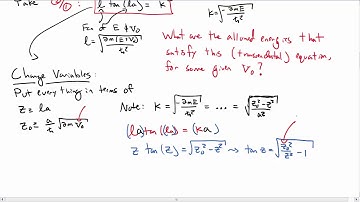 Take ②/① : l tan(la) = k
k = √(-2mE/ħ²)
Fcn of E & V₀
l = √(2m(E+V₀)/ħ²)
What are the allowed energies that
satisfy this (transcendental) equation,
for some given V₀?
Change Variables:
Put everything in terms of
z ≡ la
z₀ ≡ a/ħ √(2mV₀)
Note: k = √(-2mE/ħ²) = ... = √((z₀²-z²)/a²)
(la) tan(la) = (ka)
z tan(z) = √(z₀²-z²) → tan z = √(z₀²/z² - 1)